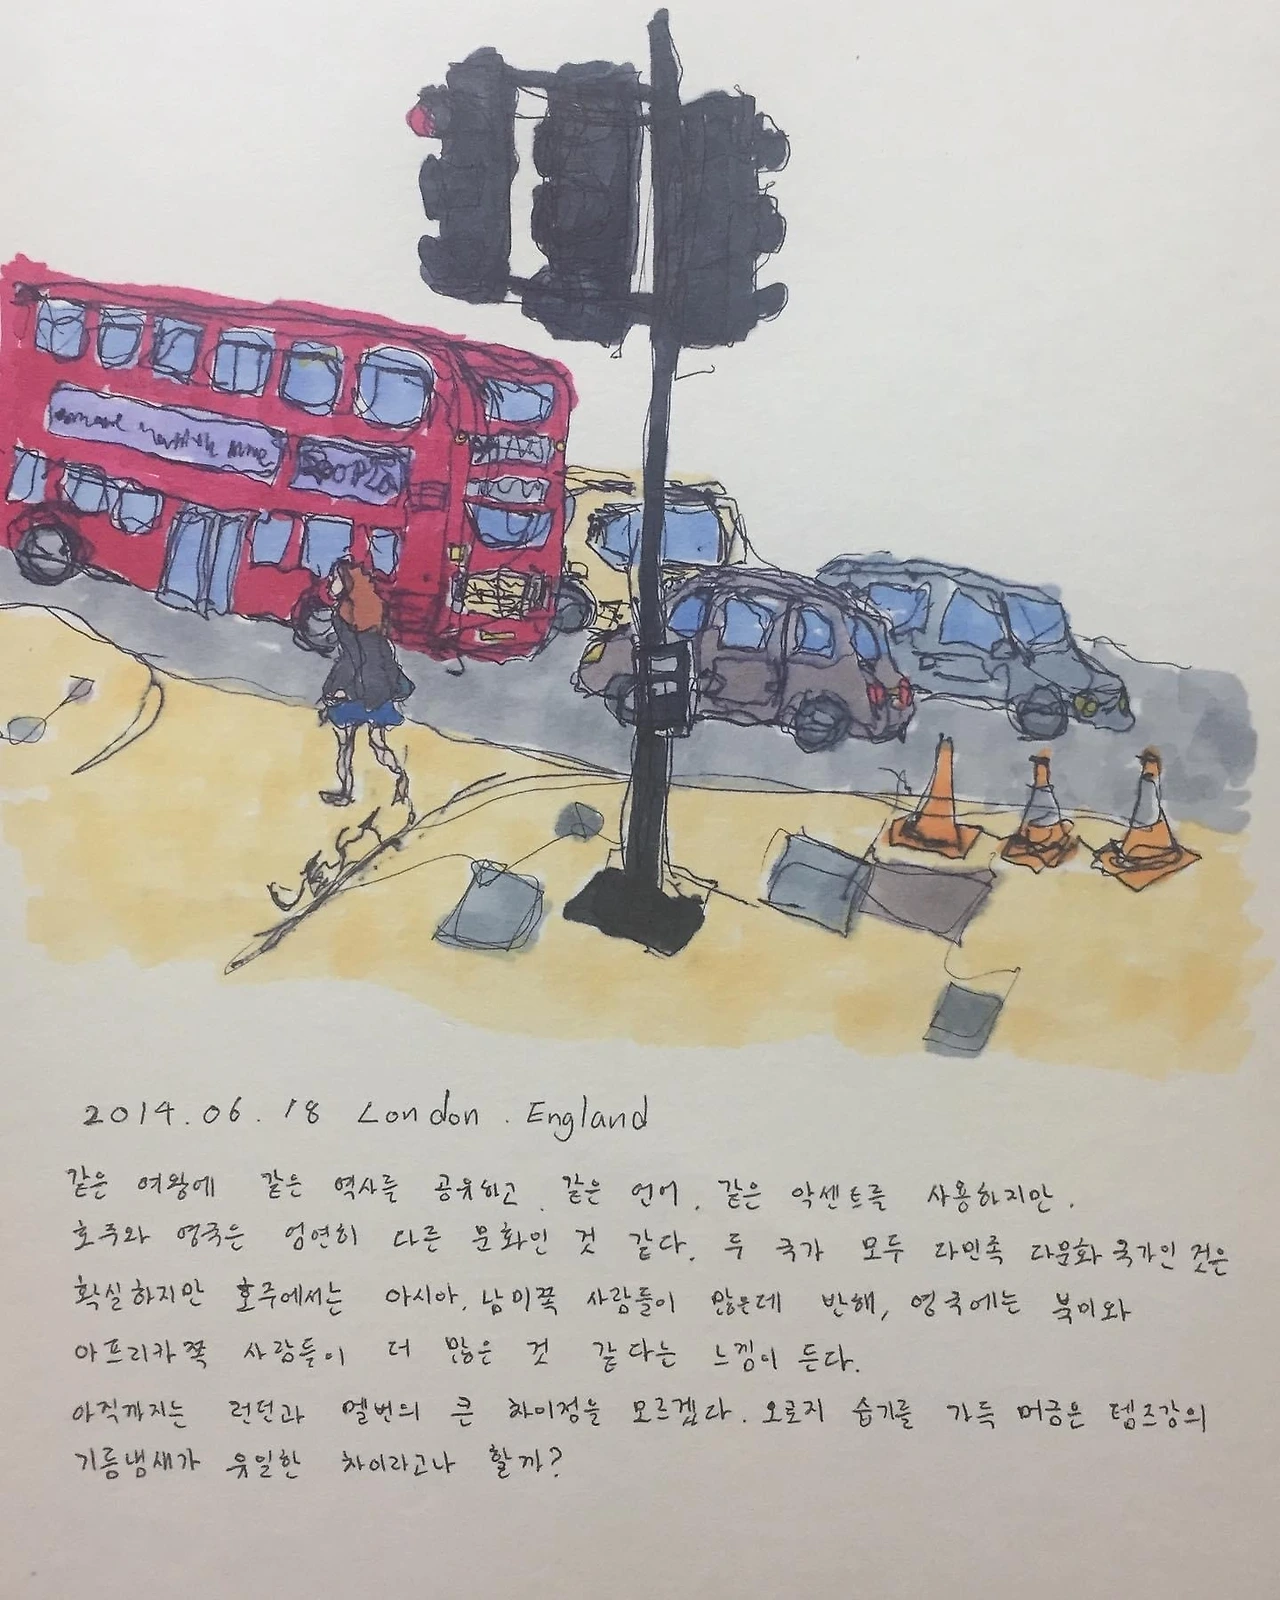 2014.06.18 London. England
같은 여왕에 같은 역사를 공유하고, 같은 언어, 같은 악센트를 사용하지만,
호주와 영국은 엄연히 다른 문화인 것 같다. 두 국가 모두 다민족 다문화 국가인 것은
확실하지만 호주에서는 아시아, 남미쪽 사람들이 많은데 반해, 영국에는 북미와
아프리카쪽 사람들이 더 많은 것 같다는 느낌이 든다.
아직까지는 런던과 멜번의 큰 차이점을 모르겠다. 오로지 습기를 가득 머금은 템즈강의
기름냄새가 유일한 차이라고나 할까?